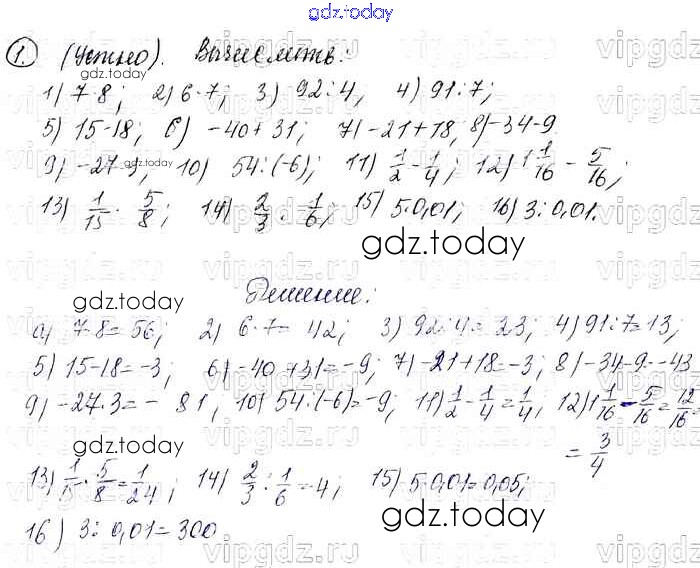 gdz.today
1. (Устно). Вычислить:
gdz.today
1) 7·8; 2) 6·7; 3) 92:4, 4) 91:7;
5) 15-18; 6) -40+31; 7) -21+18, 8) -34-9.
9) -27·3, 10) 54:(-6); 11) 1/2 - 1/4; 12) 1 1/16 - 5/16;
gdz.today
13) 1/15 · 5/8; 14) 2/3 : 1/6; 15) 5·0,01; 16) 3:0,01.
gdz.today
gdz.today
Решение:
7·8=56; 2) 6·7=42; 3) 92:4=23; 4) 91:7=13;
5) 15-18=-3; 6) -40+31=-9; 7) -21+18=-3; 8) -34-9=-43
9) -27·3=-81, 10) 54:(-6)=-9; 11) 1/2 - 1/4 = 1/4; 12) 1 1/16 - 5/16 = 12/16 =
gdz.today
= 3/4
13) 1/15 · 5/8 = 1/24; 14) 2/3 : 1/6 = 4; 15) 5·0,01=0,05;
16) 3:0,01=300
gdz.today
vipgdz.ru